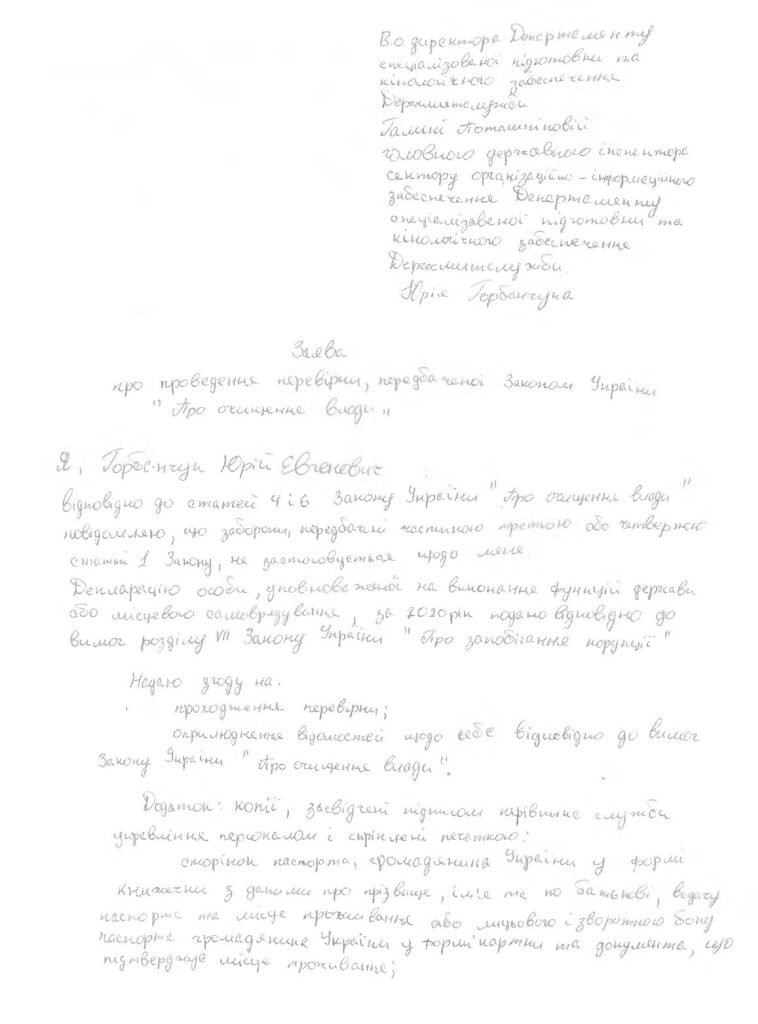 В.о директора Департаменту
спеціалізованої підготовки та
кінологічного забезпечення
Держмитслужби
Галині Поташніковій
головного державного інспектора
сектору організаційно-інформаційного
забезпечення Департаменту
спеціалізованої підготовки та
кінологічного забезпечення
Держмитслужби.
Юрія Горбанчука
Заява
про проведення перевірки, передбаченої Законом України
"Про очищення влади"
Я, Горбанчук Юрій Євгенович
відповідно до статей 4 і 6 Закону України "Про очищення влади"
повідомляю, що заборони, передбачені частиною третьою або четвертою
статті 1 Закону, не застосовується щодо мене.
Декларацію особи, уповноваженої на виконання функцій держави
або місцевого самоврядування, за 2020 рік подано відповідно до
вимог розділу VII Закону України "Про запобігання корупції"
Надаю згоду на:
проходження перевірки;
оприлюднення відомостей щодо себе відповідно до вимог
Закону України "Про очищення влади".
Додаток: копії, засвідчені підписом керівника служби
управління персоналом і скріплені печаткою:
сторінок паспорта, громадянина України у формі
книжечки з даними про прізвище, ім'я та по батькові, видачу
паспорта та місце проживання або лицьового і зворотного боку
паспорта громадянина України у формі картки та документа, що
підтверджує місце проживання;